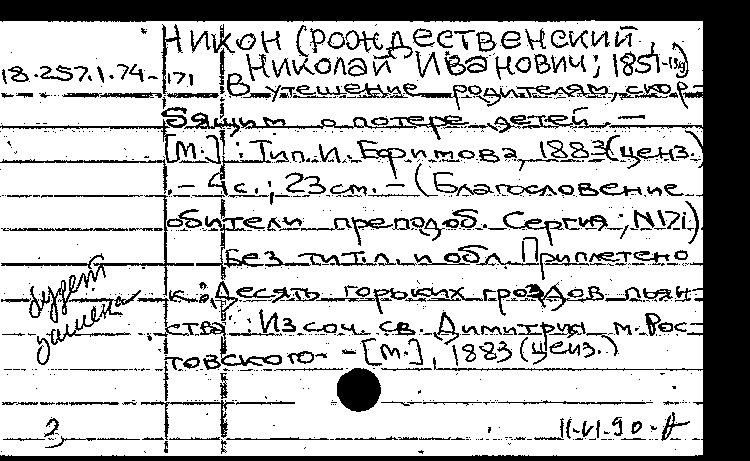 Никон (Рождественский,
Николай Иванович; 1851-
18.257.1.74-171 В утешение родителям, скор-
бящим о потере детей. —
[М.]: Тип. И. Ефимова, 1883 (ценз.)
. — 4 с.; 23 см. — (Благословение
обители преподоб. Сергия; N17i)
Без тит. л. и обл. Приплетено
к: Десять горьких гроздов пьян-
ства: Из соч. св. Димитрия м. Рос-
товского. — [М.], 1883 (ценз.)
будет
замена
3
11.VI.90.